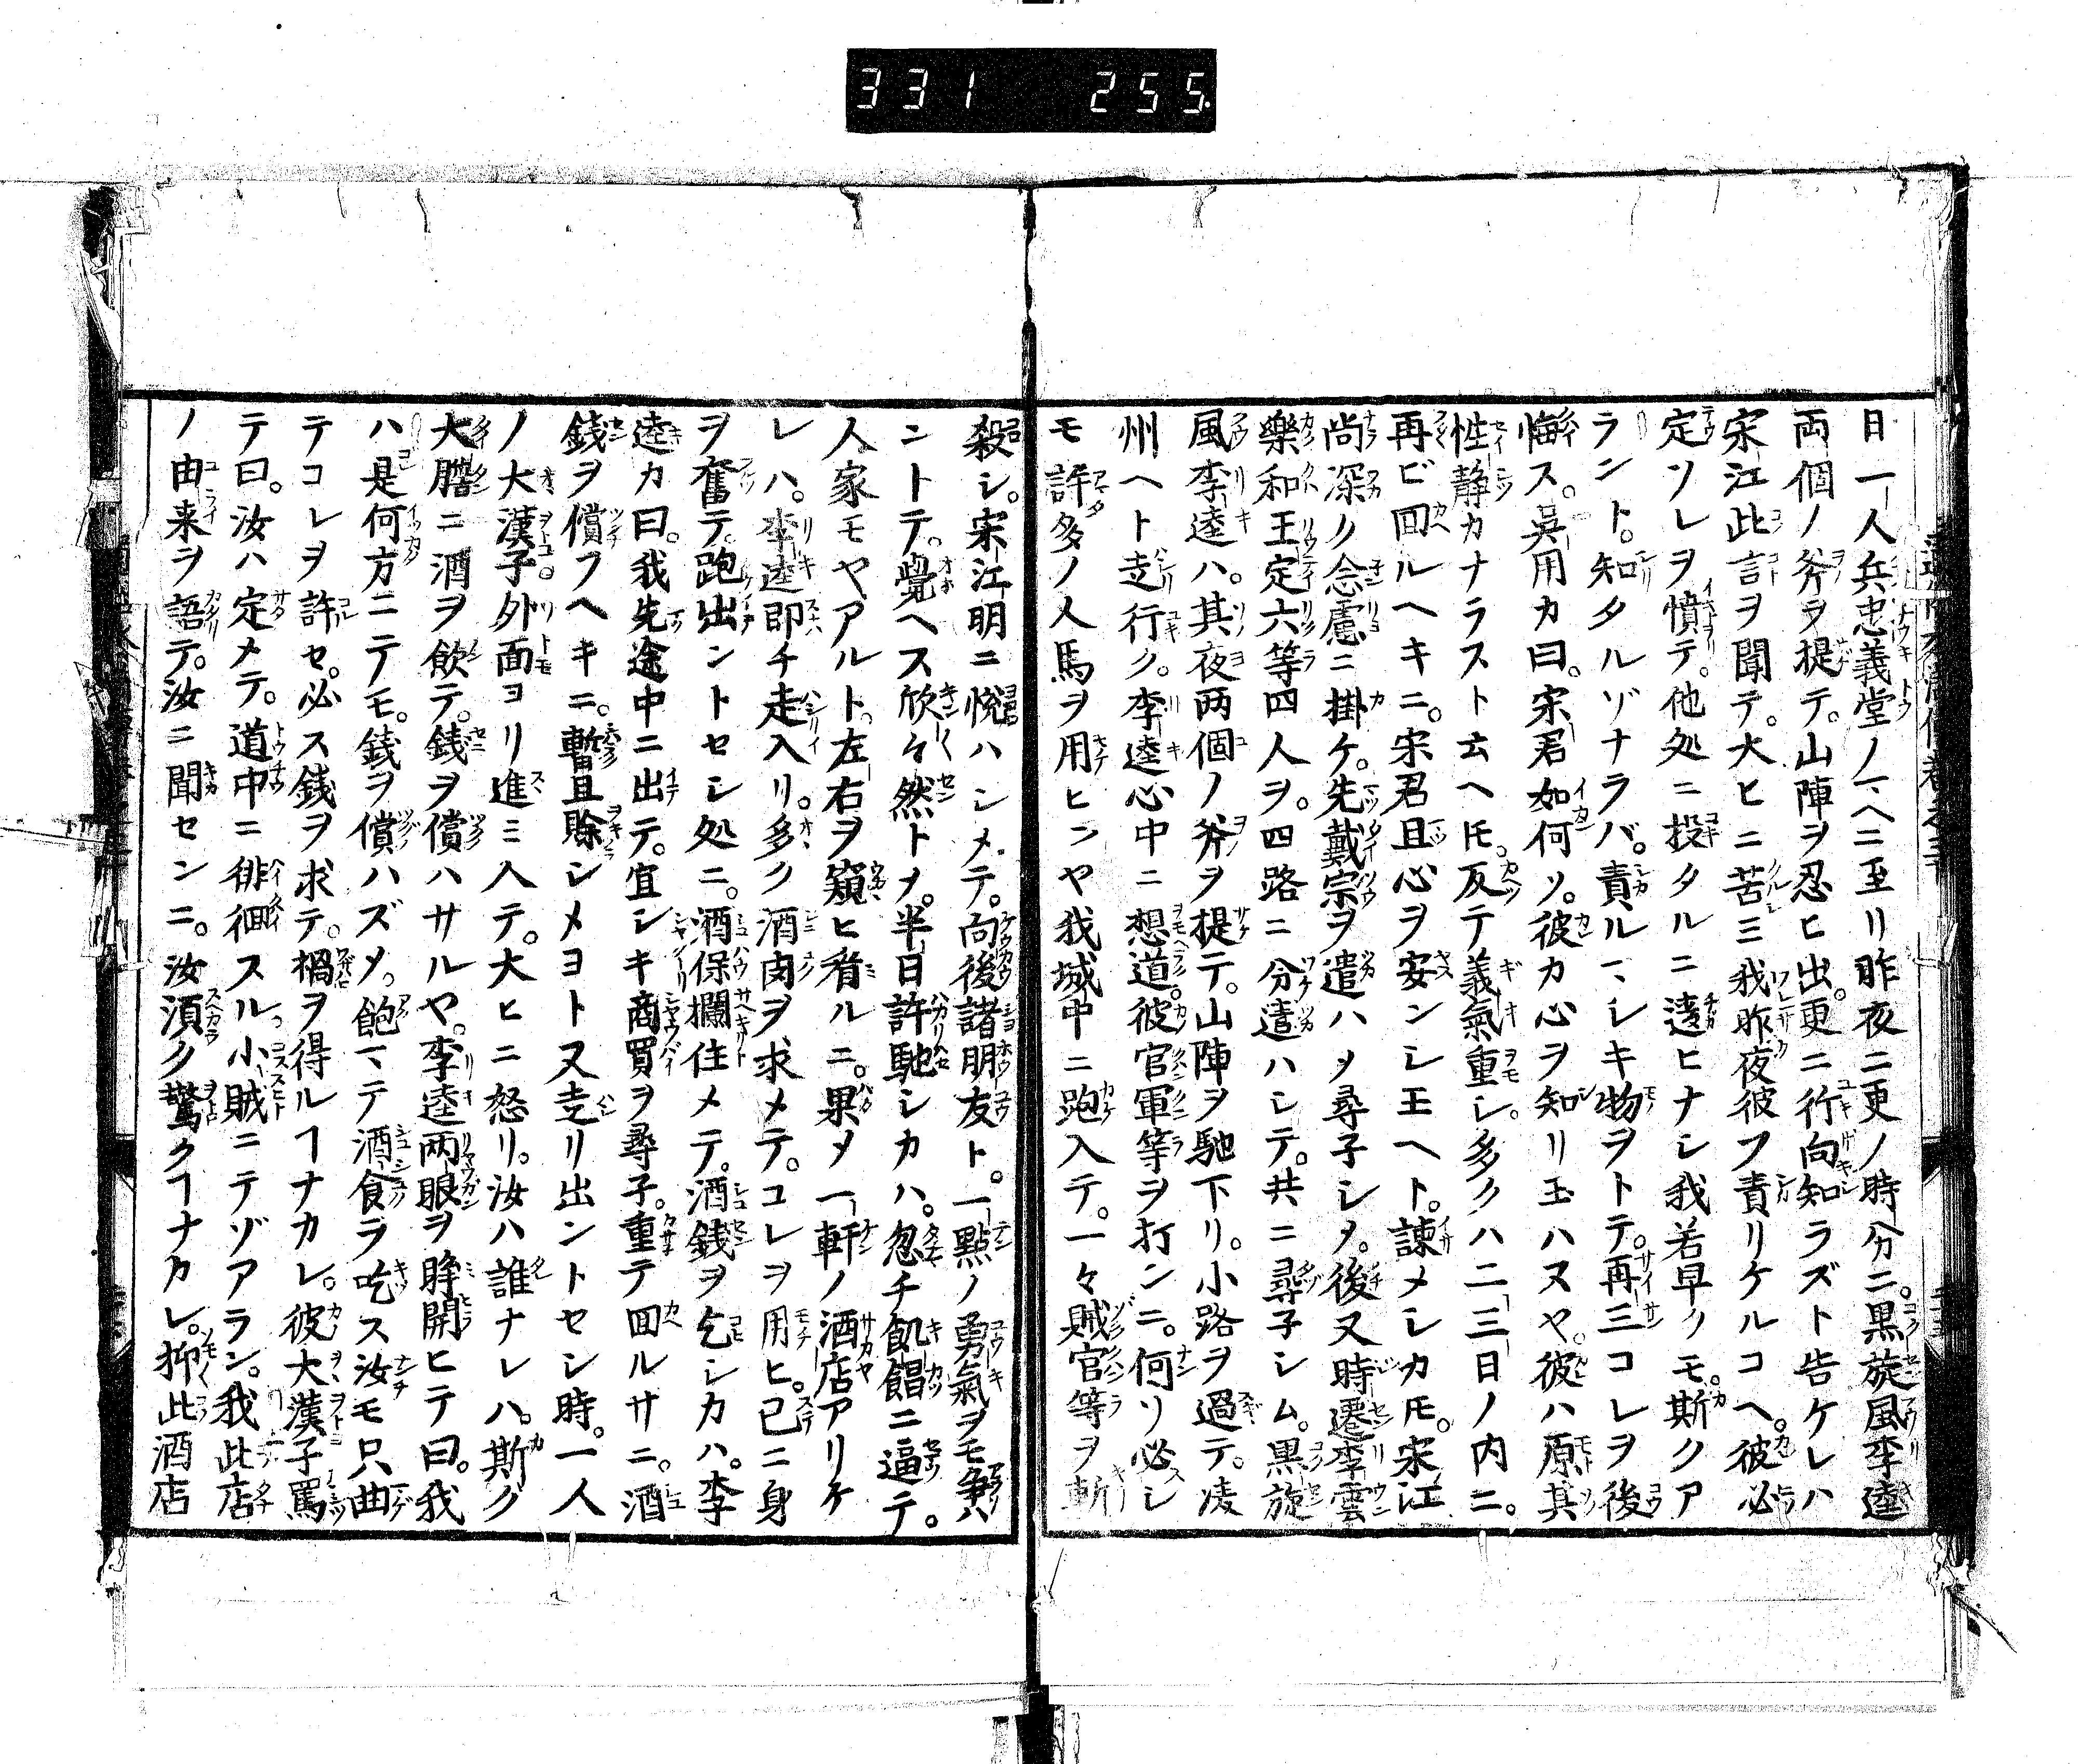 331 255.
日一人兵忠義堂ノ前ヘニ至リ昨夜二更ノ時分ニ。黒旋風李逵
両個ノ斧ヲ提テ。山陣ヲ忍ヒ出。更ニ行向知ラズト告ケレハ
宋江此言ヲ聞テ。大ヒニ苦ミ我昨夜彼フ責リケルコヘ。彼必
定ソレヲ憤テ。他処ニ投タルニ違ヒナシ我若早クモ。斯クア
ラント。知タルゾナラバ。責ルマシキ物ヲトテ。再三コレヲ後
悔ス。吳用カ曰。宋君如何ソ。彼カ心ヲ知リ玉ハヌヤ。彼ハ原其
性静カナラスト云ヘ𪜈。反テ義氣重シ。多クハ二三日ノ内ニ。
再ビ回ルヘキニ。宋君且心ヲ安ンシ玉ヘト。諫メシカ𪜈。宋江
尚深ク念慮ニ掛ケ。先戴宗ヲ遣ハメ尋子シメ。後又時遷李雲
樂和王定六等四人ヲ。四路ニ分遣ハシテ。共ニ尋子シム。黒旋
風李逵ハ。其夜両個ノ斧ヲ提テ。山陣ヲ馳下リ。小路ヲ過テ。凌
州ヘト走行ク。李逵心中ニ想道。彼官軍等ヲ打ンニ。何ソ必シ
モ許多ノ人馬ヲ用ヒンヤ我城中ニ跑入テ。一々賊官等ヲ斬
殺シ。宋江明ニ悦ハシメテ。向後諸朋友ト。一點ノ勇氣ヲモ争ハ
ントテ。覺ヘス欣々然トメ。半日許馳シカハ。忽チ飢饉ニ逼テ。
人家モヤアルト。左右ヲ窺ヒ看ルニ。果メ一軒ノ酒店アリケ
レハ。李逵即チ走入リ。多ク酒肉ヲ求メテ。コレヲ用ヒ。已ニ身
ヲ奮テ。跑出ントセシ処ニ。酒保攔住メテ。酒銭ヲ乞シカハ。李
逵カ曰。我先途中ニ出テ。宜シキ商買ヲ尋子。重テ回ルサニ。酒
銭ヲ償フヘキニ。暫且賒シメヨト又走リ出ントセシ時。一人
ノ大漢子外面ヨリ進ミ入テ。大ヒニ怒リ。汝ハ誰ナレハ。斯ク
大膽ニ酒ヲ飲テ。銭ヲ償ハサルヤ。李逵両眼ヲ睜開ヒテ曰。我
ハ是何方ニテモ。銭ヲ償ハズメ。飽マテ酒食ヲ吃ス汝モ只曲
テコレヲ許セ。必ス銭ヲ求テ。禍ヲ得ルヿナカレ。彼大漢子罵
テ曰。汝ハ定メテ。道中ニ徘徊スル。小賊ニテゾアラン。我此店
ノ由来ヲ語テ。汝ニ聞センニ。汝須ク驚クヿナカレ。抑此酒店